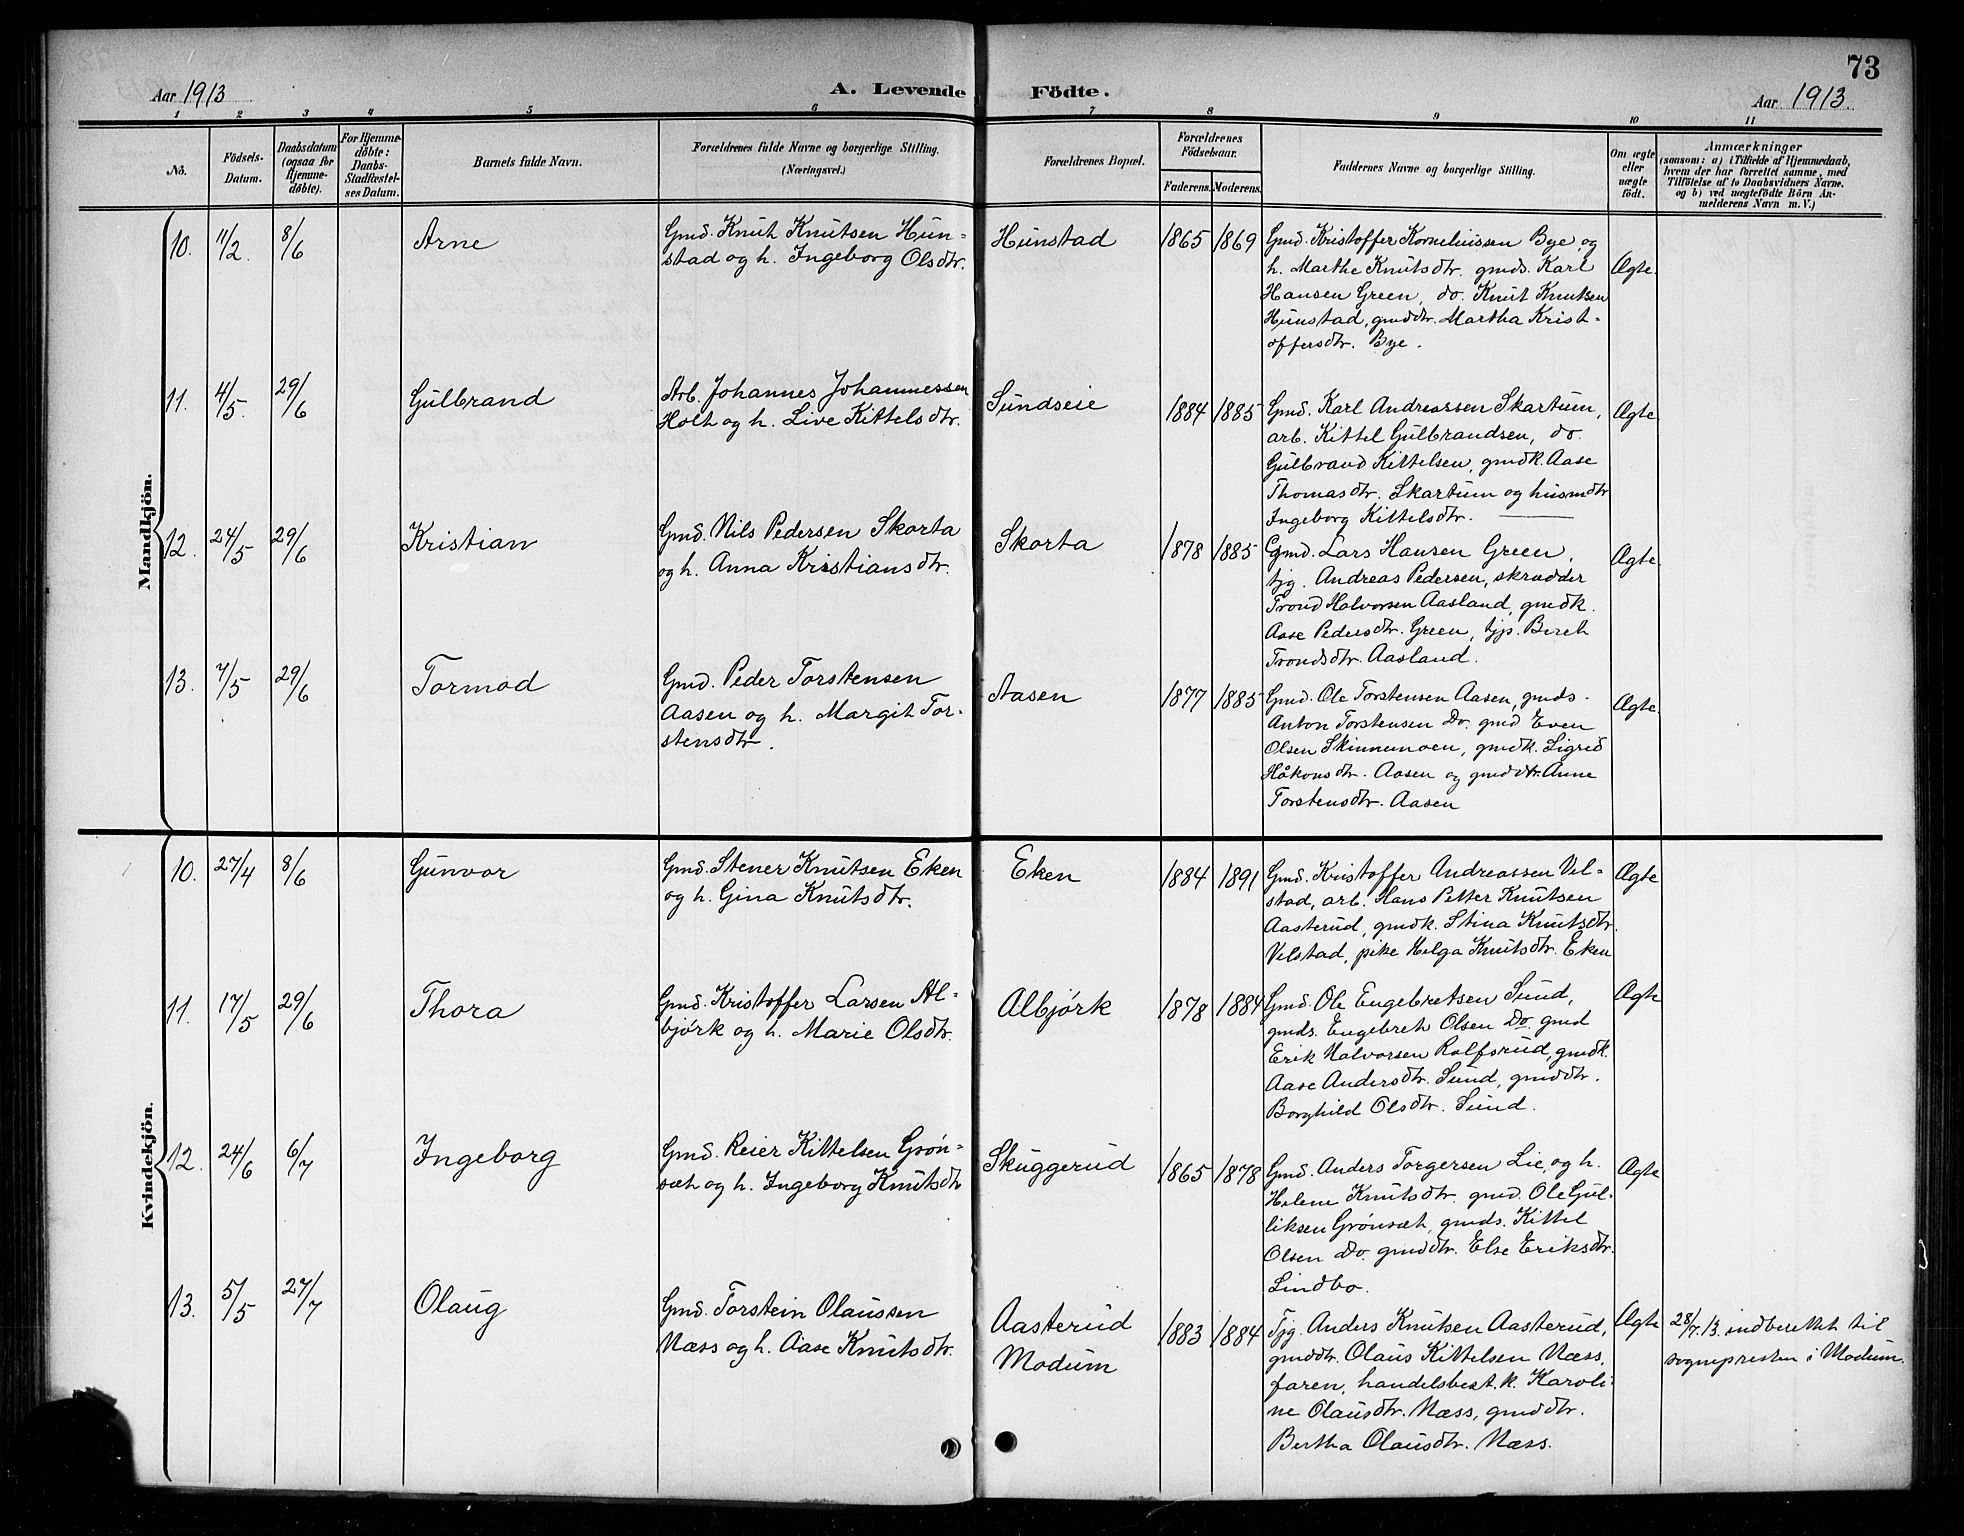 73
Aar 1913
A. Levende Födte.
Aar 1913.
1 2 3 4 5 6 7 8 9 10 11
No.
Födsels-
Datum.
Daabsdatum
(ogsaa for
Hjemme-
döbte).
For Hjemme-
döbte:
Daabs-
Stadfæstel-
ses Datum.
Barnets fulde Navn.
Forældrenes fulde Navne og borgerlige Stilling.
(Næringsvei.)
Forældrenes Bopæl.
Forældrenes
Födselsaar.
Faderens. Moderens.
Faddernes Navne og borgerlige Stilling.
Om ægte
eller
uægte
födt.
Anmærkninger
(saasom: a) i Tilfælde af Hjemmedaab,
hvem der har forrettet samme, med
Tilföielse af to Daabsvidners Navne.
og b) ved uægtefödte Börn An-
melderens Navn m. V.)
Mandkjön.
10. 11/2. 8/6 Arne
Gmd. Knut Knutsen Hun-
stad og h. Ingeborg Olsdtr.
Hunstad 1865 1869
Gmd. Kristoffer Korneliussen Bye, og
h. Marthe Knutsdtr. gmds. Karl
Hansen Green, do. Knut Knutsen
Hunstad, gmddtr. Martha Krist-
offersdtr. Bye.
Ægte.
11. 4/5. 29/6 Gulbrand
Arb. Johannes Johannessen
Holt og h. Live Kittelsdtr.
Sundseie 1884 1885
Gmd. Karl Andreassen Skartum,
arb. Kittel Gulbrandsen, do.
Gulbrand Kittelsen, gmdk. Aase
Thomasdtr. Skartum og husmdtr
Ingeborg Kittelsdtr.
Ægte
12. 24/5 29/6 Kristian
Gmd. Nils Pedersen Skorta
og h. Anna Kristiansdtr.
Skorta 1878 1885
Gmd. Lars Hansen Green,
tjg. Andreas Pedersen, skrædder
Trond Halvorsen Aasland, gmdk.
Aase Pedersdtr. Green, tjp. Beret
Trondsdtr. Aasland.
Ægte
13. 7/5 29/6 Tormod
Gmd. Peder Torstensen
Aasen og h. Margit Tor-
stensdtr.
Aasen 1877 1885
Gmd. Ole Torstensen Aasen, gmds.
Anton Torstensen Do. gmd Even
Olsen Skinnemoen, gmdk. Sigrid
Håkonsdtr. Aasen og gmddtr. Anne
Torstensdtr. Aasen
Ægte.
Kvindekjön.
10. 27/4 8/6 Gunvor
Gmd. Stener Knutsen Eken
og h. Gina Knutsdtr.
Eken 1884 1891
Gmd. Kristoffer Andreassen Vel-
stad, arb. Hans Petter Knutsen
Aasterud, gmdk. Stina Knutsdtr.
Velstad, pike Helga Knutsdtr. Eken
Ægte
11. 17/5 29/6 Thora
Gmd. Kristoffer Larsen Al-
bjørk og h. Marie Olsdtr.
Albjørk 1878 1884
Gmd. Ole Engebretsen Sund,
gmds. Engebret Olsen Do. gmd
Erik Halvorsen Rolfsrud, gmdk.
Aase Andersdtr. Sund, gmddtr.
Borghild Olsdtr. Sund.
Ægte
12. 24/6 6/7 Ingeborg
Gmd. Reier Kittelsen Grøn-
sæt og h. Ingeborg Knutsdtr
Skuggerud 1865 1878
Gmd. Anders Torgersen Lie, og h.
Helene Knutsdtr. gmd. Ole Gul-
liksen Grønsæt, gmds. Kittel
Olsen do. gmddtr. Else Eriksdtr.
Lindbo.
Ægte
13. 5/5 27/7 Olaug
Gmd. Torstein Olaussen
Næss og h. Aase Knutsdtr.
Aasterud
Modum
1883 1884
Tjg. Anders Knutsen Aasterud,
gmddtr. Olaus Kittelsen Næss,
faren, handelsbest.k. Karoli-
ne Olausdtr. Næss, gmddtr.
Bertha Olausdtr. Næss.
Ægte
28/7.13. indberettet til
sognepresten i Modum.